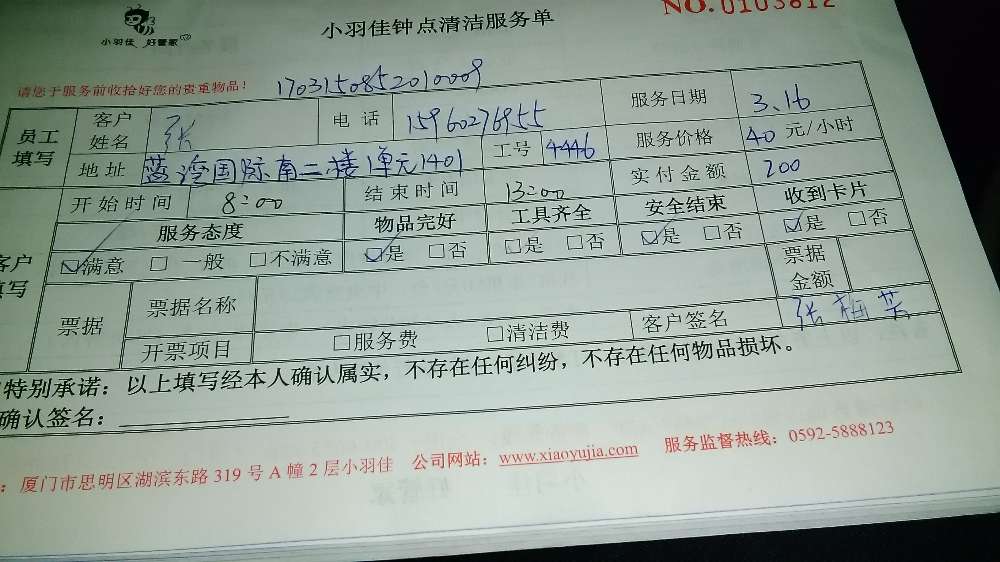 小羽佳 好管家
小羽佳钟点清洁服务单
NO.0103812
请您于服务前收拾好您的贵重物品!
1703150852010009
员工填写 客户姓名 张 电话 15960276955 服务日期 3.16
地址 蓝湾国际南二楼1单元1401 工号 4446 服务价格 40 元/小时
开始时间 8:00 结束时间 13:00 实付金额 200
客户填写 服务态度 物品完好 工具齐全 安全结束 收到卡片
☑满意 □一般 □不满意 ☑是 □否 □是 □否 ☑是 □否 ☑是 □否
票据 票据名称 票据金额
开票项目 □服务费 □清洁费 客户签名 张梅芳
特别承诺：以上填写经本人确认属实，不存在任何纠纷，不存在任何物品损坏。
确认签名：
：厦门市思明区湖滨东路 319 号 A 幢 2 层小羽佳 公司网站：www.xiaoyujia.com 服务监督热线：0592-5888123